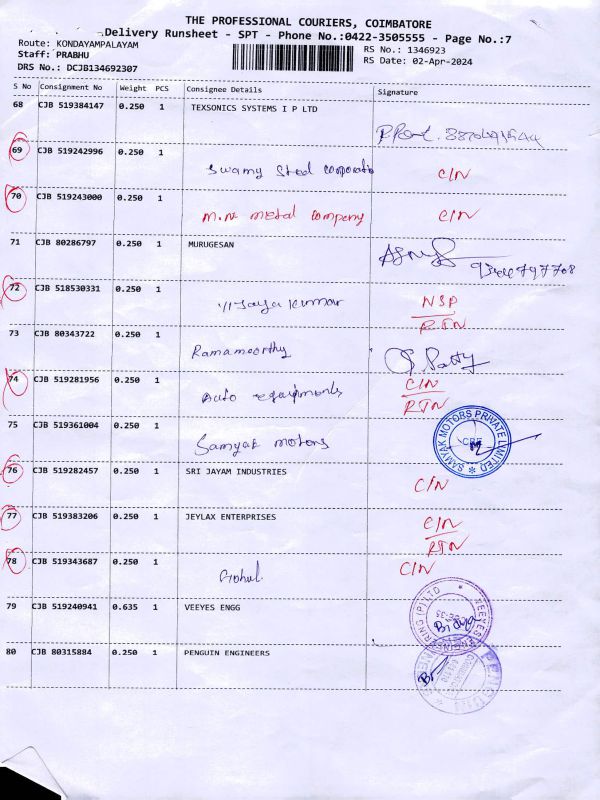 THE PROFESSIONAL COURIERS, COIMBATORE
Delivery Runsheet - SPT - Phone No.:0422-3505555 - Page No.:7
Route: KONDAYAMPALAYAM
Staff: PRABHU
DRS No.: DCJB134692307
RS No.: 1346923
RS Date: 02-Apr-2024
S No Consignment No Weight PCS Consignee Details Signature
68 CJB 519384147 0.250 1 TEXSONICS SYSTEMS I P LTD
69 CJB 519242996 0.250 1 Swamy Steel corporation C/N
70 CJB 519243000 0.250 1 M.N. metal company C/N
71 CJB 80286797 0.250 1 MURUGESAN
72 CJB 518530331 0.250 1 Vijaya kumar NSP
RTN
73 CJB 80343722 0.250 1 Ramamoorthy
74 CJB 519281956 0.250 1 Auto equipments C/N
RTN
75 CJB 519361004 0.250 1 Samyak motors SAMYAK MOTORS PRIVATE LIMITED
CBE
76 CJB 519282457 0.250 1 SRI JAYAM INDUSTRIES C/N
77 CJB 519383206 0.250 1 JEYLAX ENTERPRISES C/N
RTN
78 CJB 519343687 0.250 1 Gohul C/N
79 CJB 519240941 0.635 1 VEEYES ENGG
80 CJB 80315884 0.250 1 PENGUIN ENGINEERS